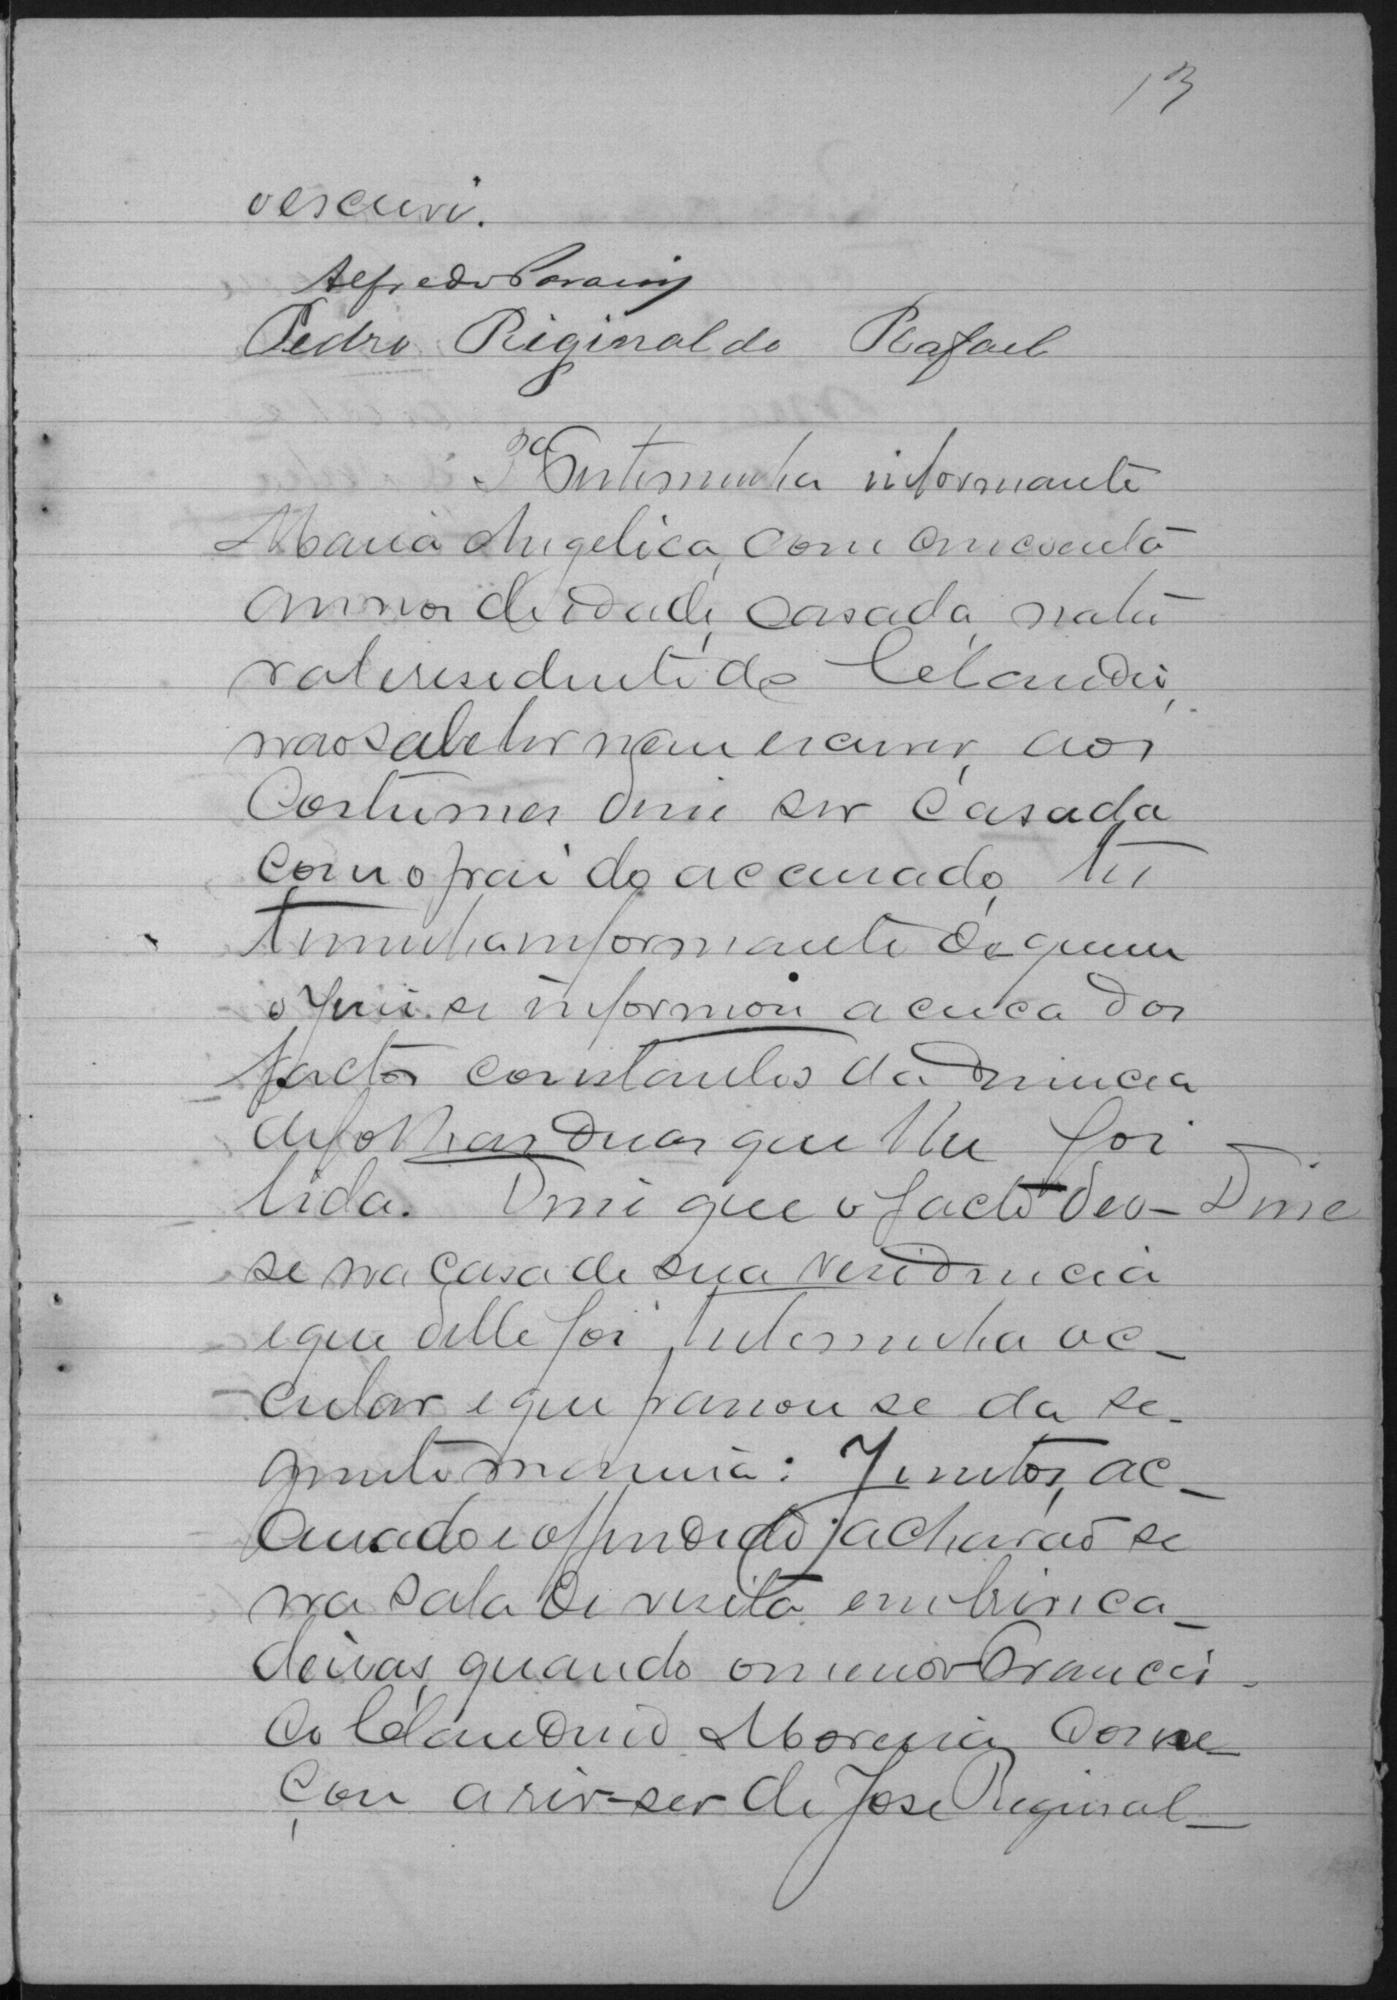 13
o escrevi.
Alfredo
Pedro Riginaldo Rafael
3ª Testemunha informante
Maria Angelica, com cincoenta
annos de idade, casada, natu
ral e residente de
não sabe ler nem escrever, aos
Costumes disse ser casada
com o pai do accusado, tes
temunha informante de quem
o Juiz se informou acerca dos
factos constantes da denuncia
de folhas duas que lhe foi
lida. Disse que o facto deo- Disse
se na casa de sua residencia
e que delle foi testemunha oc-
cular e que passou se da se-
guinte maneira: Juntos, ac-
cusado e offendido, acharão se
na sala de visita em brinca-
deiras, quando o menor Francis-
co Claudino Moreira come-
çou a rir-se de José Riginal-